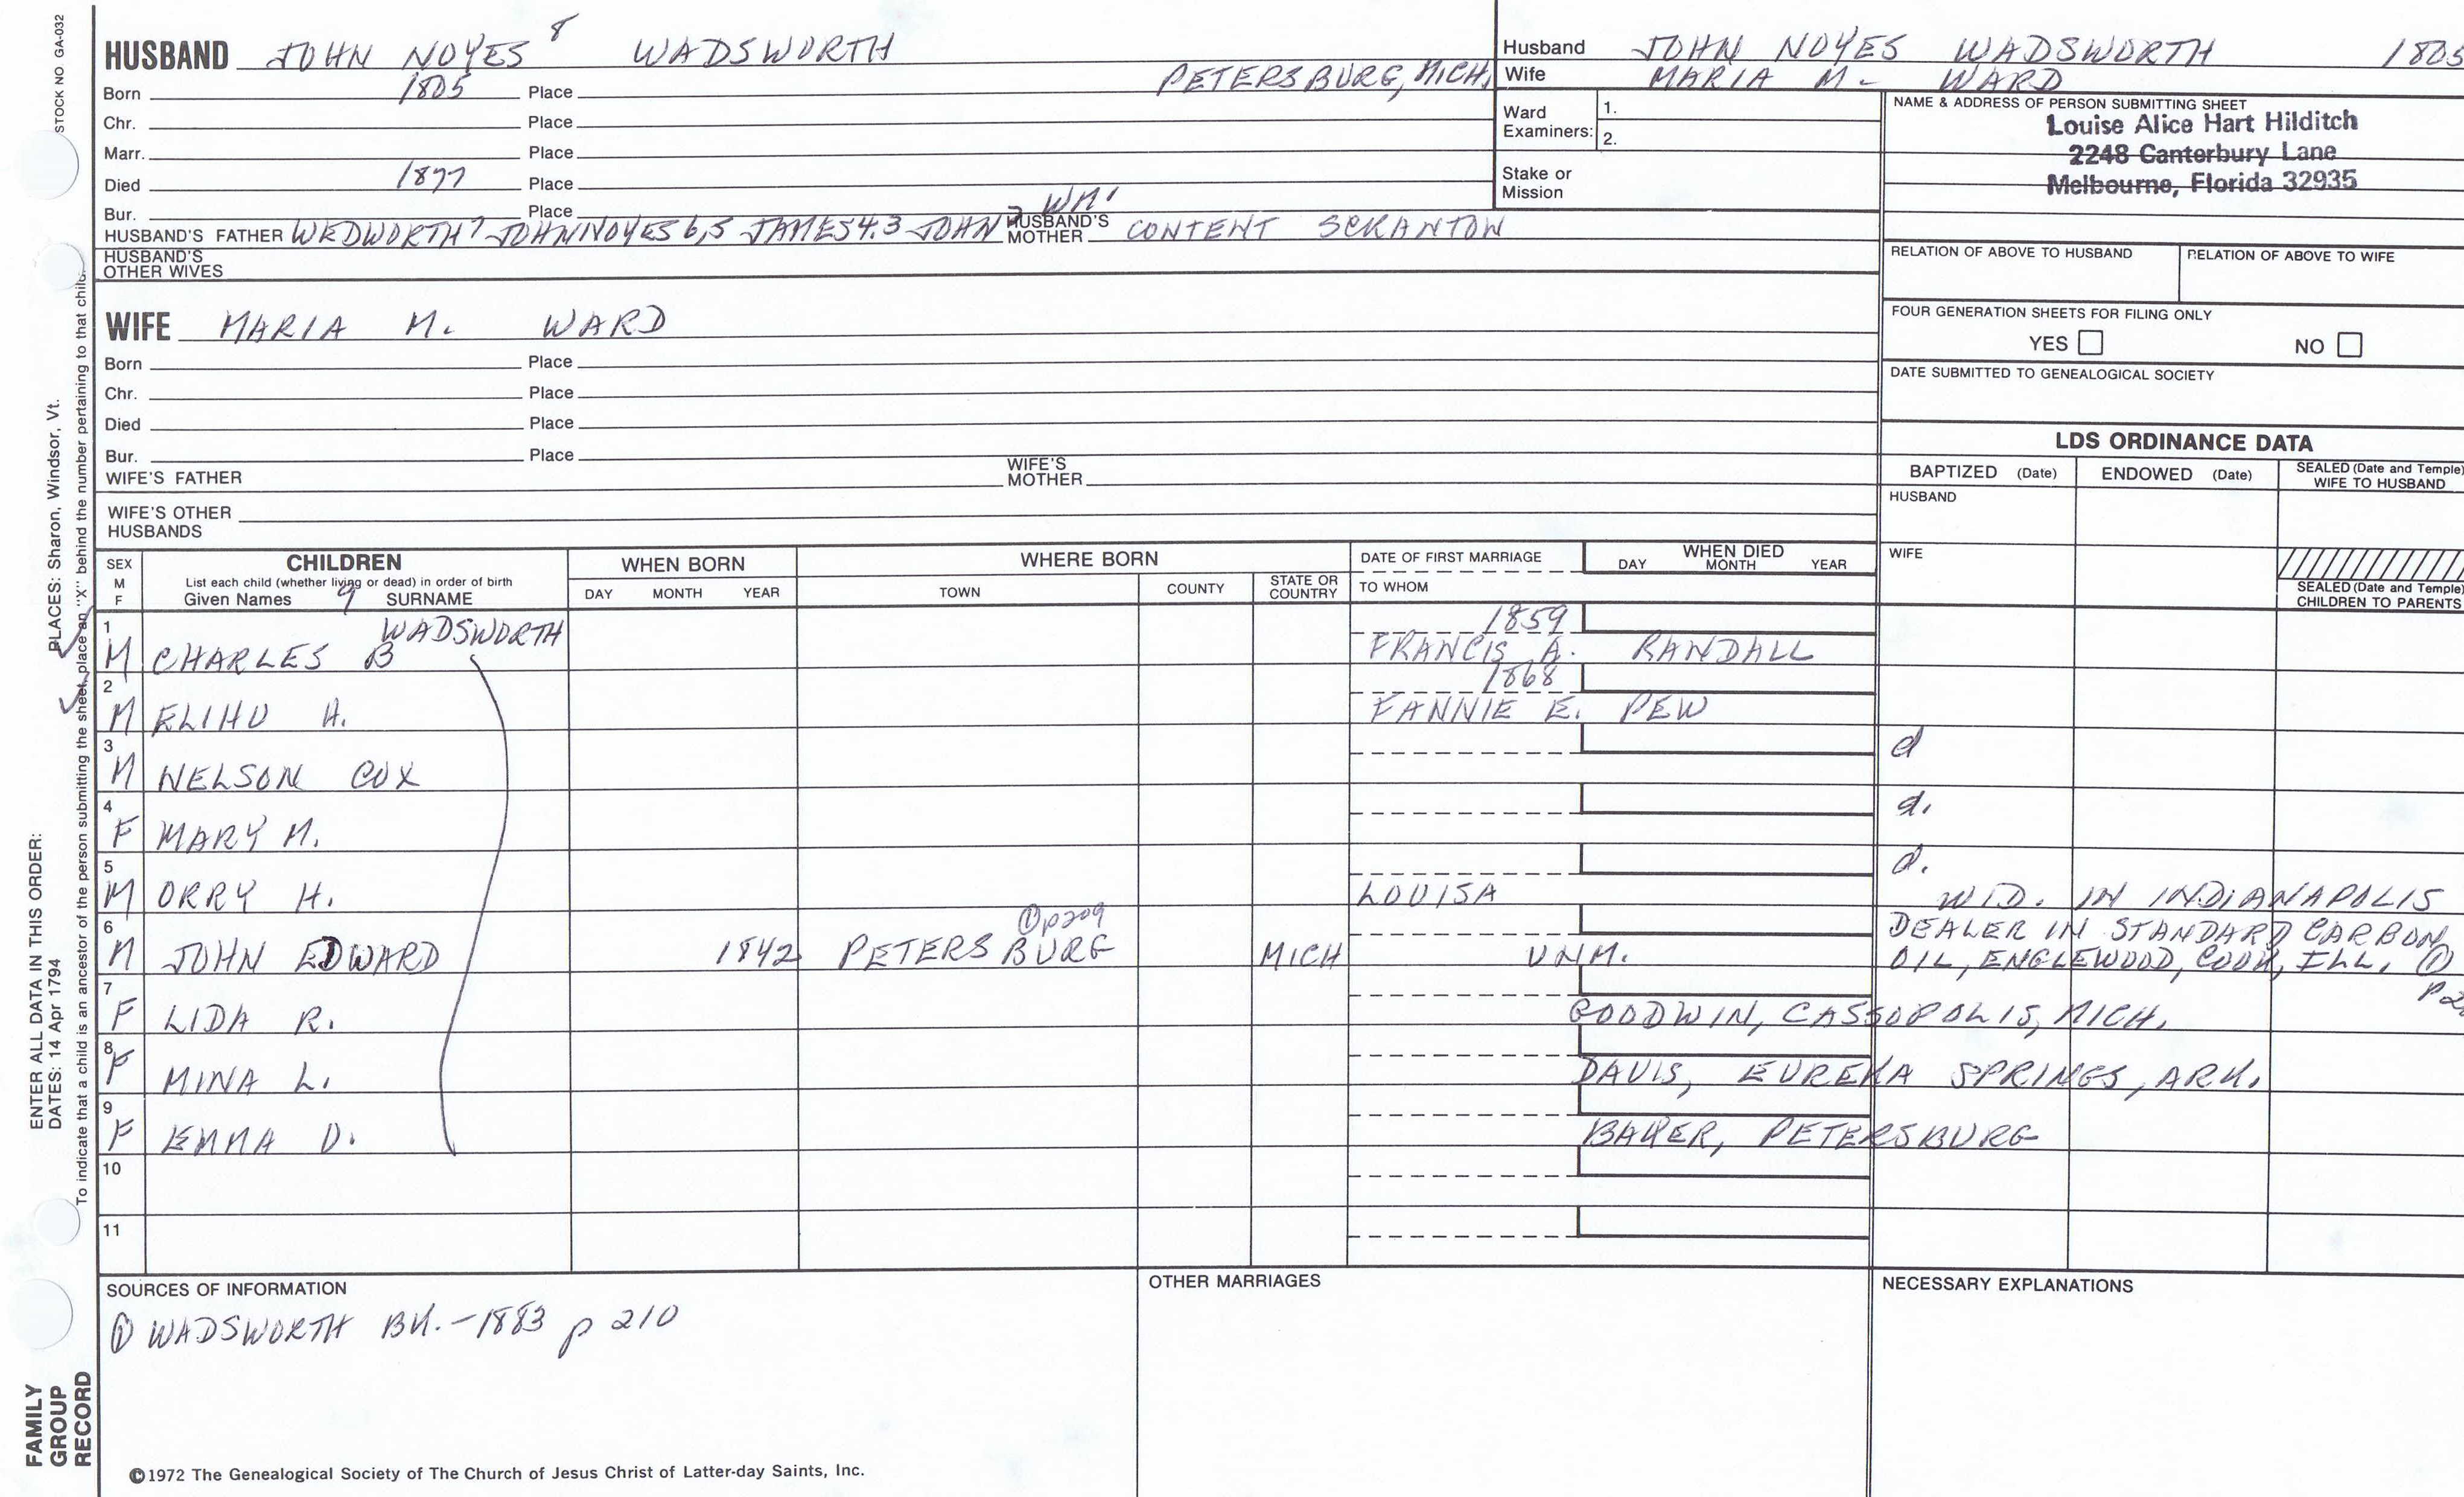 STOCK NO GA-032
HUSBAND JOHN NOYES 8 WADSWORTH
Born 1805 Place PETERSBURG, MICH.
Chr. Place
Marr. Place
Died 1877 Place
Bur. Place
HUSBAND'S FATHER WEDWORTH 7 JOHN NOYES 6,5 JAMES 4.3 JOHN 2 WM 1 HUSBAND'S MOTHER CONTENT SCRANTON
HUSBAND'S OTHER WIVES
WIFE MARIA M. WARD
Born Place
Chr. Place
Died Place
Bur. Place
WIFE'S FATHER WIFE'S MOTHER
WIFE'S OTHER HUSBANDS
Husband JOHN NOYES WADSWORTH 1805
Wife MARIA M. WARD
Ward Examiners: 1.
2.
Stake or Mission
NAME & ADDRESS OF PERSON SUBMITTING SHEET
Louise Alice Hart Hilditch
2248 Canterbury Lane
Melbourne, Florida 32935
RELATION OF ABOVE TO HUSBAND RELATION OF ABOVE TO WIFE
FOUR GENERATION SHEETS FOR FILING ONLY
YES NO
DATE SUBMITTED TO GENEALOGICAL SOCIETY
LDS ORDINANCE DATA
BAPTIZED (Date) ENDOWED (Date) SEALED (Date and Temple) WIFE TO HUSBAND
HUSBAND
WIFE
SEALED (Date and Temple) CHILDREN TO PARENTS
SEX M F
CHILDREN
List each child (whether living or dead) in order of birth
Given Names 9 SURNAME
WHEN BORN
DAY MONTH YEAR
WHERE BORN
TOWN COUNTY STATE OR COUNTRY
DATE OF FIRST MARRIAGE
TO WHOM
WHEN DIED
DAY MONTH YEAR
1 M CHARLES B WADSWORTH 1859 FRANCIS A. RANDALL
2 M ELIHU A. 1868 FANNIE E. PEW
3 M NELSON COX d
4 F MARY M. d.
5 M ORRY H. LOUISA d. WID. IN INDIANAPOLIS
6 M JOHN EDWARD 1842 PETERSBURG ① p209 MICH UNM. DEALER IN STANDARD CARBON OIL, ENGLEWOOD, COOK, ILL. ①
7 F LIDA R. GOODWIN, CASSOPOLIS, MICH.
8 F MINA L. DAVIS, EUREKA SPRINGS, ARK.
9 F EMMA D. BAKER, PETERSBURG
10
11
SOURCES OF INFORMATION
① WADSWORTH BK. - 1883 p 210
OTHER MARRIAGES
NECESSARY EXPLANATIONS
©1972 The Genealogical Society of The Church of Jesus Christ of Latter-day Saints, Inc.
ENTER ALL DATA IN THIS ORDER:
DATES: 14 Apr 1794 PLACES: Sharon, Windsor, Vt.
To indicate that a child is an ancestor of the person submitting the sheet, place an "X" behind the number pertaining to that child.
FAMILY
GROUP
RECORD